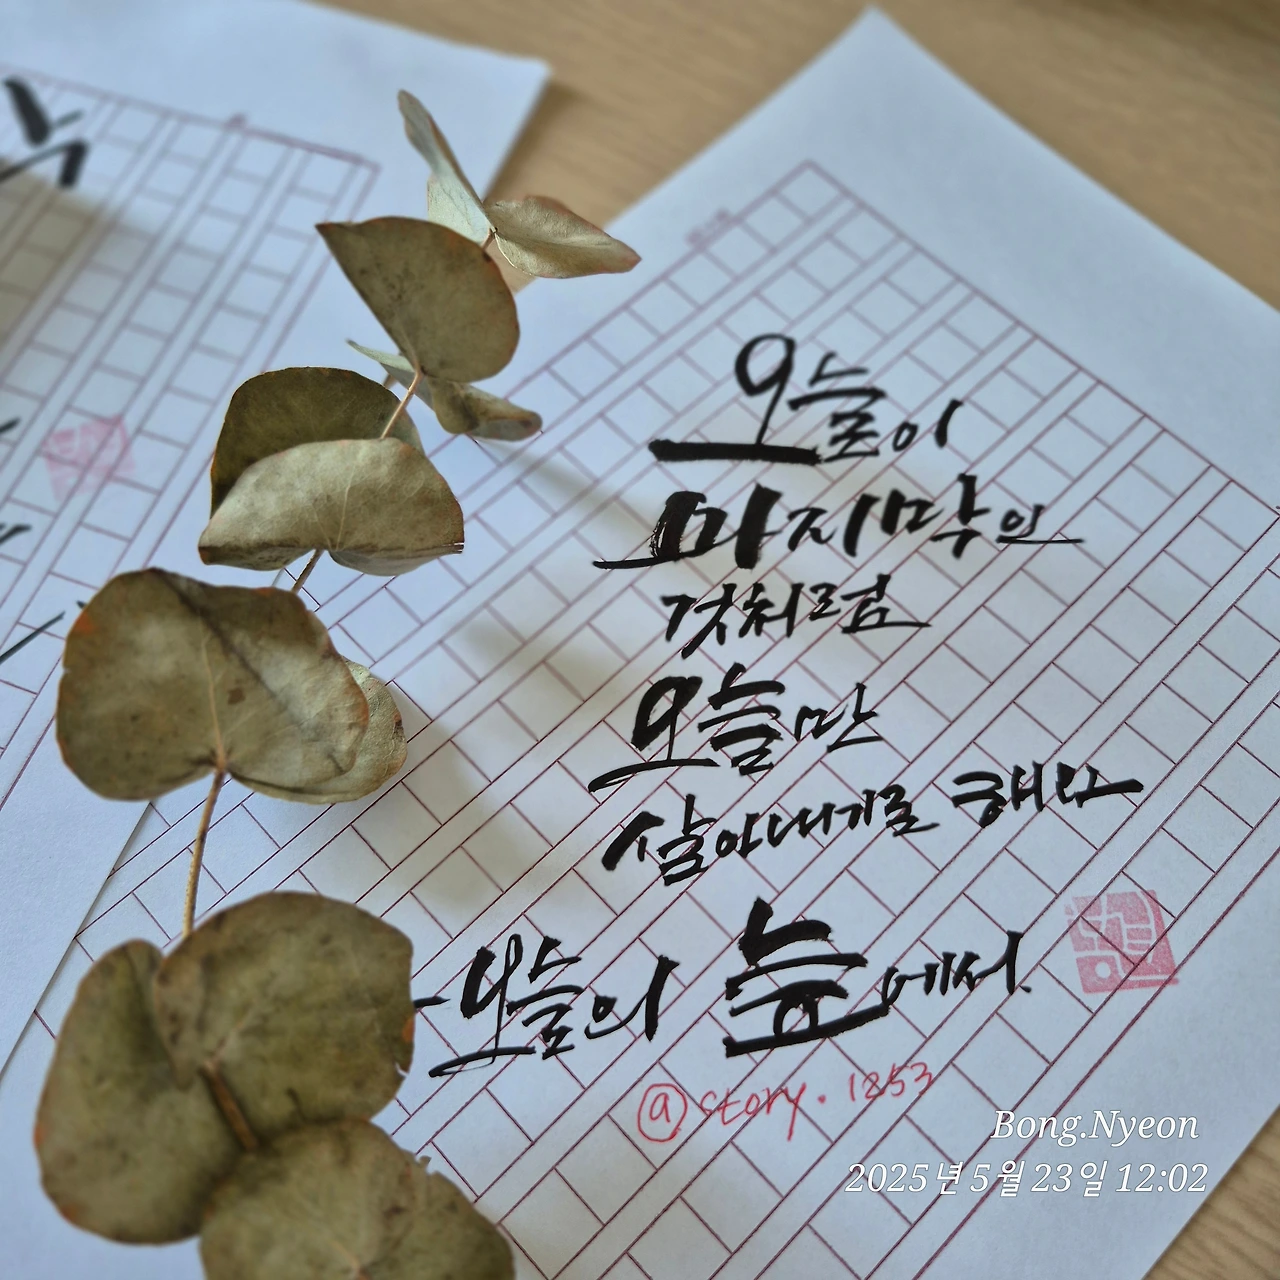 오늘이
마지막인
것처럼
오늘만
살아내기로 해요
- 오늘의 눈에서.
@story.1853
Bong.Nyeon
2025년 5월 23일 12:02